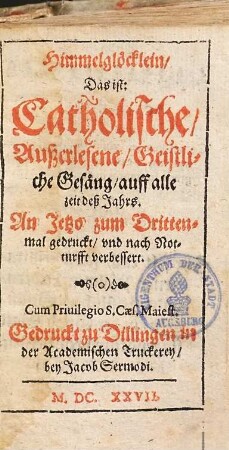 Himmelglöcklein/
Das ist:
Catholische/
Außerlesene/ Geistli-
che Gesäng/ auff alle
zeit deß Jahrs.
An Jetzo zum Dritten-
mal gedruckt/ vnd nach Not-
turfft verbessert.
Cum Priuilegio S. Cæs. Maiest.
Gedruckt zu Dillingen in
der Academischen Truckerey/
bey Jacob Sermodi.
M. DC. XXVII.
EIGENTHUM DER STADT
AUGSBURG